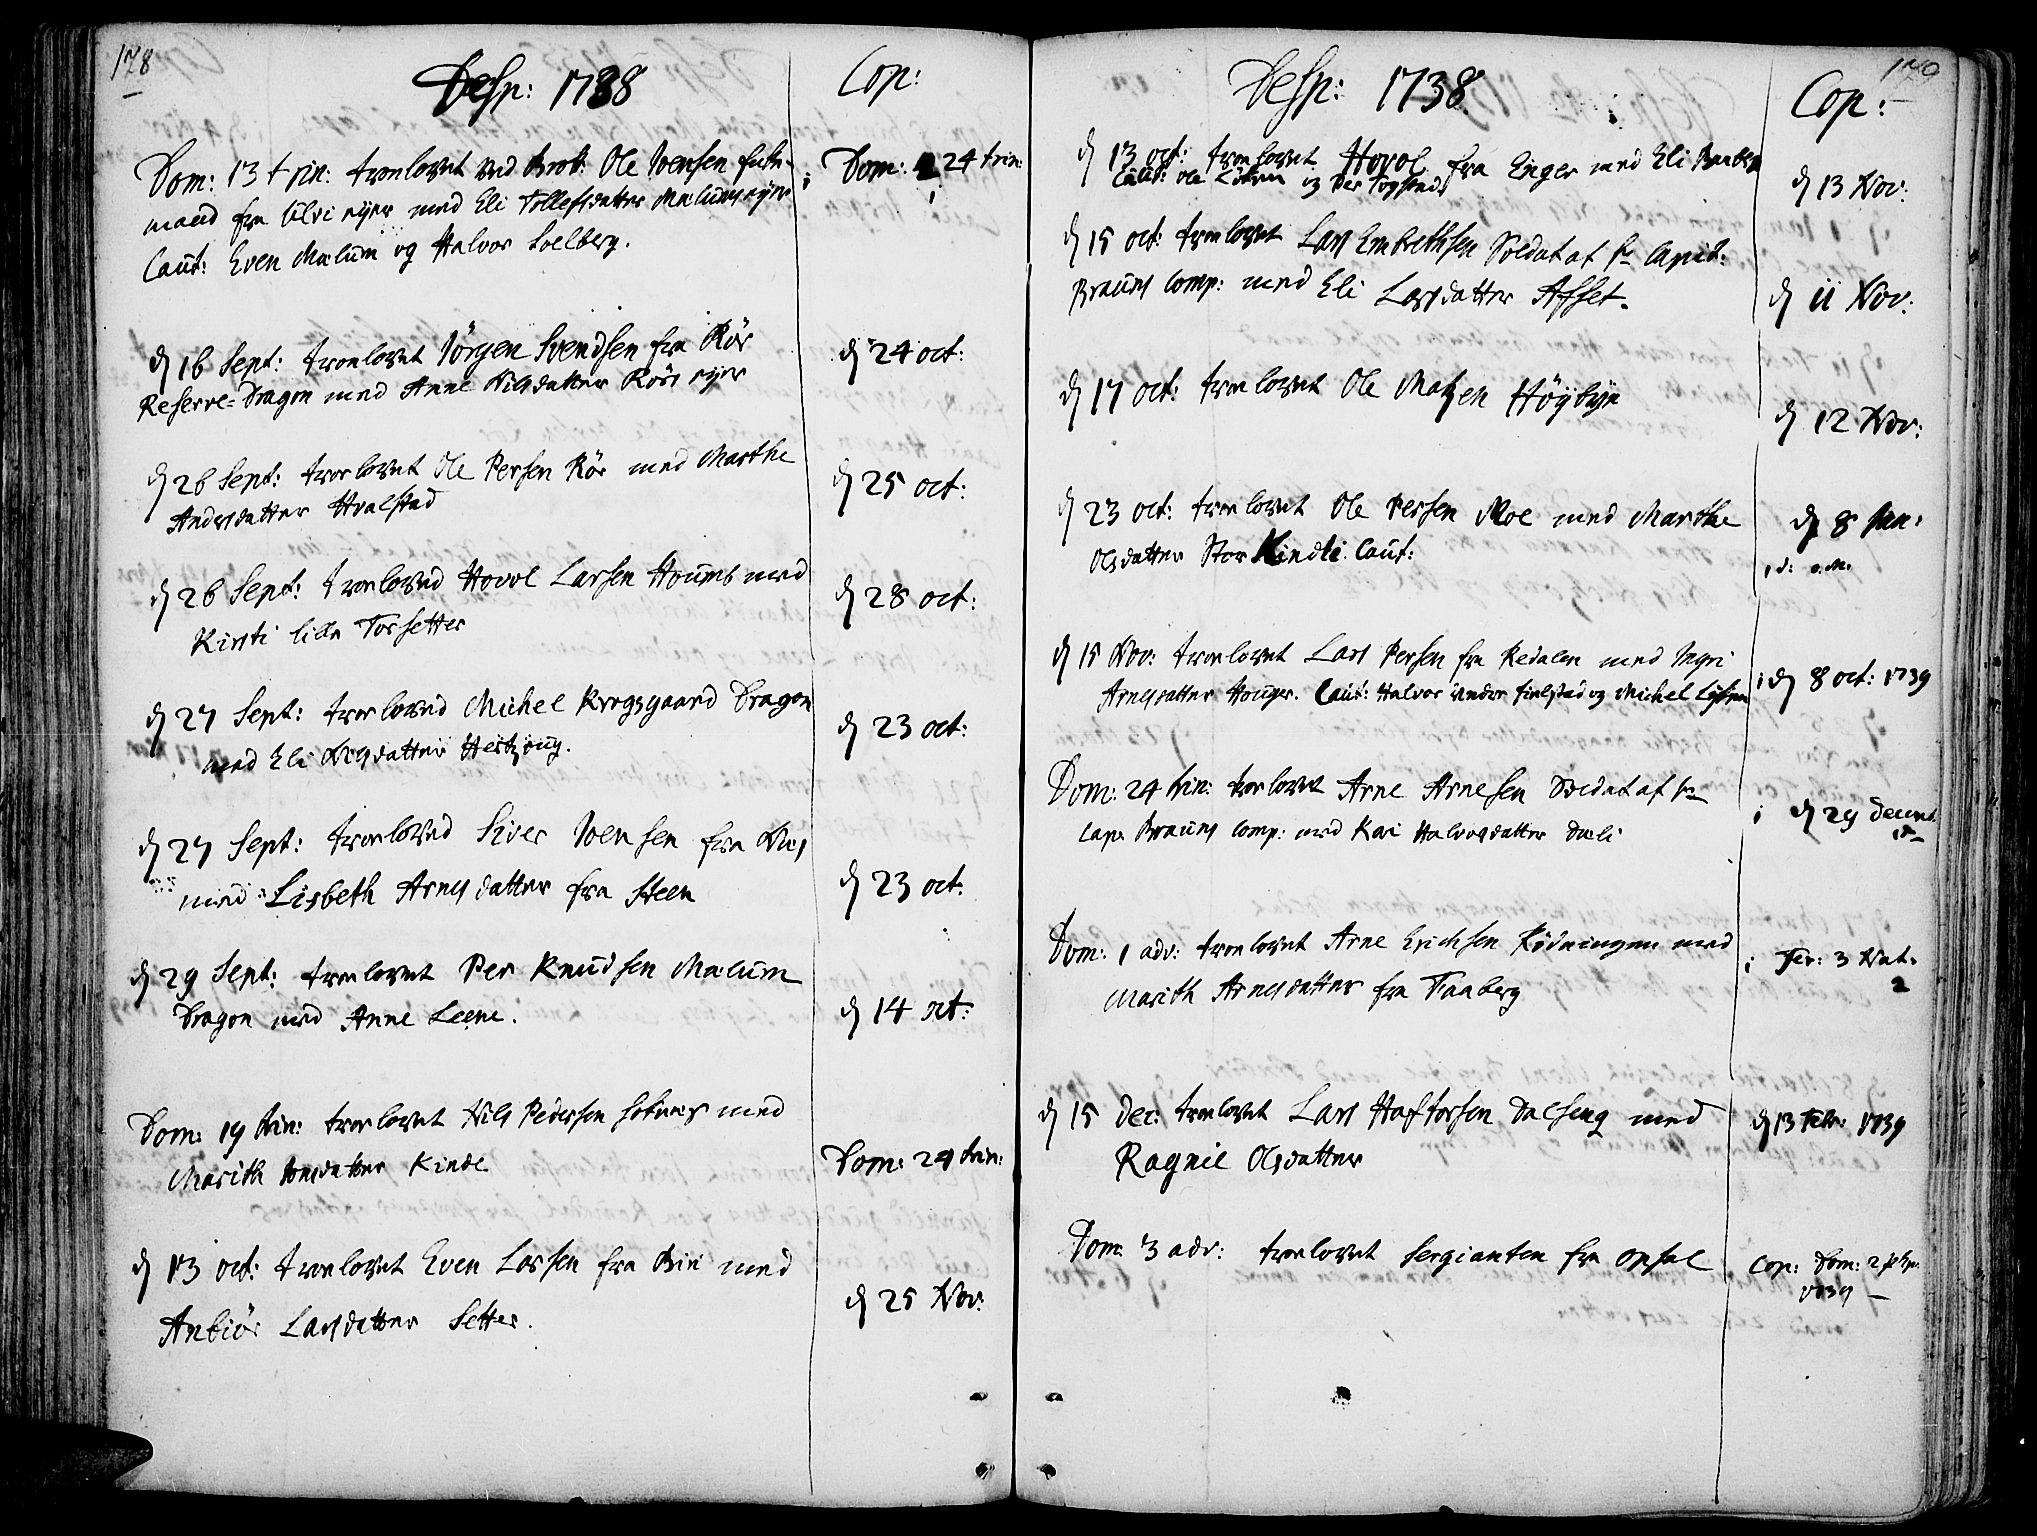 178
Desp: 1738
Cop:
Dom: 13 trin: troelovet ved Brøt: Ole Joensen
mand fra Ulvi eyer med Eli Tollefsdatter Mælums eyer
Caut: Even Mælum og Halvor Solberg.
Dom: 24 trin:
d 16 Sept: troelovet Jörgen Svendsen fra Rör
Reserve=Dragon med Anne Nilsdatter Rörs eyer
d 24 oct:
d 26 Sept: troelovet Ole Persen Rör med Marthe
Andersdatter Hvalstad
d 25 oct:
d 26 Sept: troeloved Hovol Larsen Houmb med
Kirsti lille Torsetter
d 28 oct:
d 27 Sept: troeloved Michel Krogsgaard Dragon
med Eli Nilsdatter
d 23 oct:
d 27 Sept: troeloved Siver Joensen fra Næs
med Lisbeth Arnesdatter fra Steen
d 23 oct:
d 29 Sept: troelovet Per Knudsen Mælum
Dragon med Anne Leene.
d 14 oct:
Dom: 19 trin: troelovet Nils Pedersen med
Marith Jonsdatter Kinde
Dom: 24 trin:
d 13 oct: troelovet Even Larsen fra Brii med
Anbiör Larsdatter Setter.
d 25 Nov:
179
Desp: 1738
Cop:
d 13 oct: troelovet Hovol fra Enger med Eli Baaberg
Caut: Ole og Per
d 13 Nov:
d 15 oct: troelovet Lars Embrethsen Soldat af Hr Capit:
Brauns Comp: med Eli Larsdatter Afset.
d 11 Nov:
d 17 oct: troelovet Ole Matzen Höybye
d 12 Nov:
d 23 oct: troelovet Ole Persen Moe med Marthe
Olsdatter Stor Kindli. Caut:
d 8 Jan:
d 15 Nov: troelovet Lars Persen fra Redalen med Ingri
Arnesdatter Houger. Caut: Halvor Under Fielstad og Michel
d 8 oct: 1739
Dom: 24 trin: troelovet Arne Arnesen Soldat af Hr
Cap: Brauns Comp: med Kari Halvorsdatter Dæli
d 29 Decemb:
Dom: 1 adv: troelovet Arne Erichsen Rödningen med
Marith Arnesdatter fra Faaberg
Fer: 3 Nat:
d 15 Dec: troelovet Lars Haftorsen Dalseng med
Ragnie Olsdatter
d 13 Febr: 1739
Dom: 3 adv: troelovet Sergianten fra Opsal
Cop: Dom: 2 p. Ep:
1739